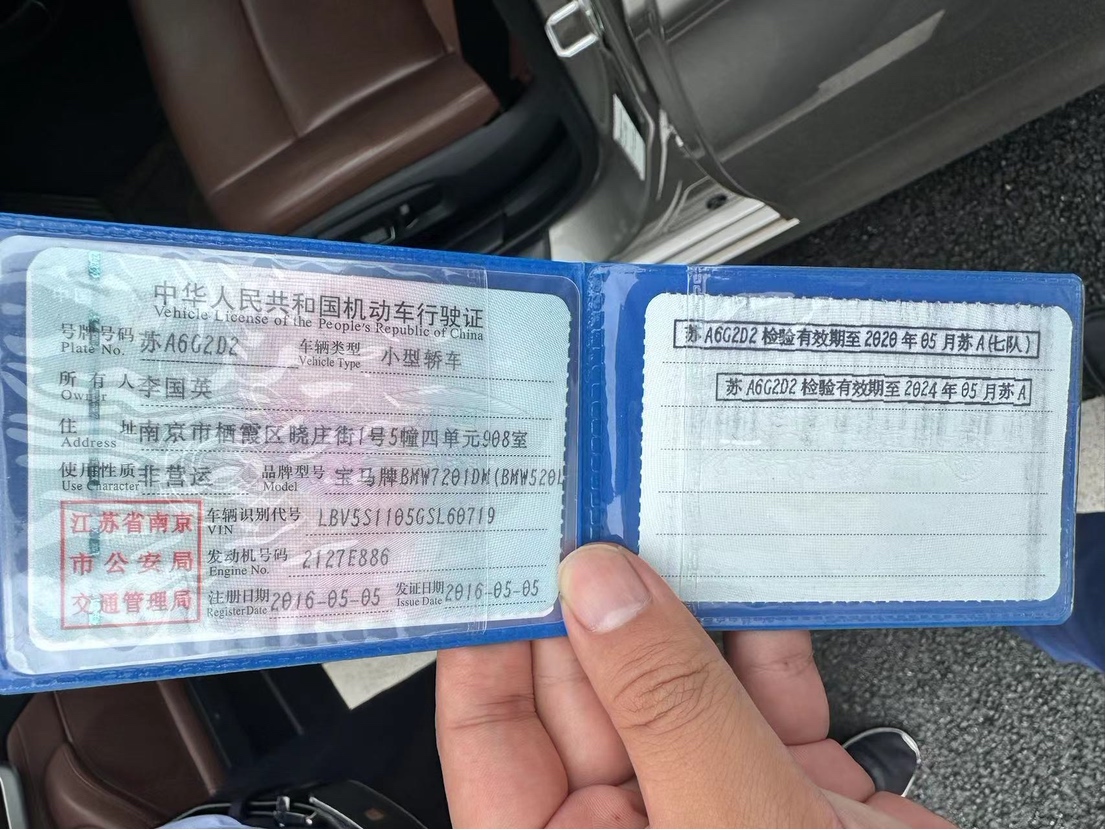 中华人民共和国机动车行驶证
Vehicle License of the People's Republic of China
号牌号码 苏A6G2D2 车辆类型 小型轿车
Plate No. Vehicle Type
所有人 李国英
Owner
住址 南京市栖霞区晓庄街1号5幢四单元908室
Address
使用性质 非营运 品牌型号 宝马牌BMW7201DM(BMW520L
Use Character Model
车辆识别代号 LBV5S1105GSL60719
VIN
发动机号码 2127E886
Engine No.
注册日期 2016-05-05 发证日期 2016-05-05
Register Date Issue Date
江苏省南京
市公安局
交通管理局
苏A6G2D2检验有效期至2020年05月苏A(七队)
苏A6G2D2检验有效期至2024年05月苏A